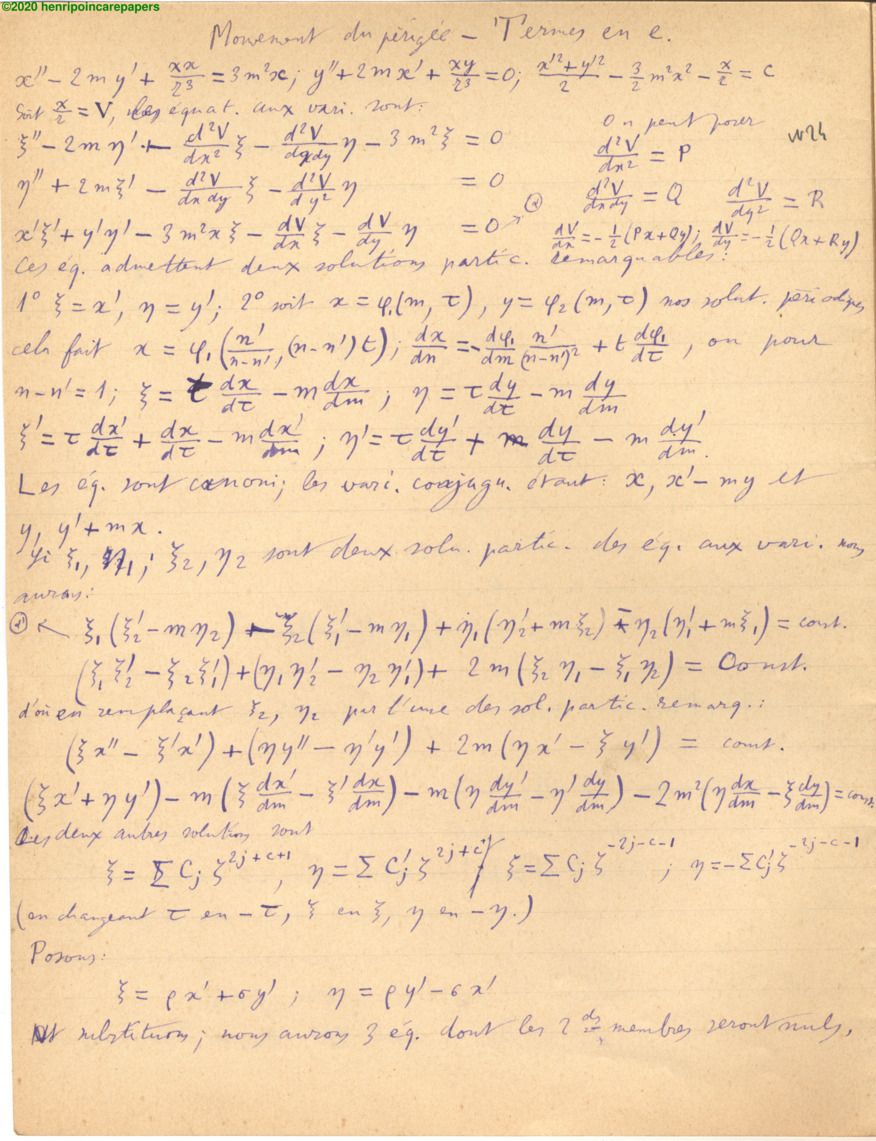 ©2020 henripoincarepapers
Mouvement du périgée – Termes en e.
x'' − 2my' + xx/r³ = 3m²x; y'' + 2mx' + xy/r³ = 0; (x'²+y'²)/2 − 3/2 m²x² − x/r = C
Soit x/r = V, les équat. aux vari. sont:
On peut poser
ξ'' − 2mη' − d²V/dx² ξ − d²V/dxdy η − 3m²ξ = 0
d²V/dx² = P
η'' + 2mξ' − d²V/dxdy ξ − d²V/dy² η = 0
d²V/dxdy = Q d²V/dy² = R
x'ξ' + y'η' − 3m²xξ − dV/dx ξ − dV/dy η = 0
dV/dx = −1/2 (Px+Qy); dV/dy = −1/2 (Qx+Ry)
Ces éq. admettent deux solutions partic. remarquables:
1° ξ = x', η = y'; 2° soit x = φ₁(m, τ), y = φ₂(m, τ) nos solut. périodiques
cela fait x = φ₁(n'/(n−n'), (n−n')t); dx/dn = −dφ₁/dm n'/(n−n')² + t dφ₁/dτ, on pour
n−n' = 1; ξ = τ dx/dτ − m dx/dm; η = τ dy/dτ − m dy/dm
ξ' = τ dx'/dτ + dx/dτ − m dx'/dm; η' = τ dy'/dτ + dy/dτ − m dy'/dm.
Les éq. sont canoni; les vari. conjugu. étant: x, x' − my et
y, y' + mx.
Si ξ₁, η₁; ξ₂, η₂ sont deux solu. partic. des éq. aux vari. nous
aurons:
ξ₁(ξ₂' − mη₂) − ξ₂(ξ₁' − mη₁) + η₁(η₂' + mξ₂) − η₂(η₁' + mξ₁) = const.
(ξ₁ξ₂' − ξ₂ξ₁') + (η₁η₂' − η₂η₁') + 2m(ξ₂η₁ − ξ₁η₂) = Const.
d'où en remplaçant ξ₂, η₂ par l'une des sol. partic. remarq.:
(ξx'' − ξ'x') + (ηy'' − η'y') + 2m(ηx' − ξy') = const.
(ξx' + ηy') − m(ξ dx'/dm − ξ' dx/dm) − m(η dy'/dm − η' dy/dm) − 2m²(η dx/dm − ξ dy/dm) = const.
Les deux autres solutions sont
ξ = Σ Cⱼ ζ^(2j+c+1), η = Σ C'ⱼ ζ^(2j+c+1); ξ = Σ Cⱼ ζ^(−2j−c−1); η = −Σ C'ⱼ ζ^(−2j−c−1)
(en changeant τ en −τ, ξ en ξ, η en −η.)
Posons:
ξ = ρx' + σy'; η = ρy' − σx'
Et substituons; nous aurons 3 éq. dont les 2ds membres seront nuls,